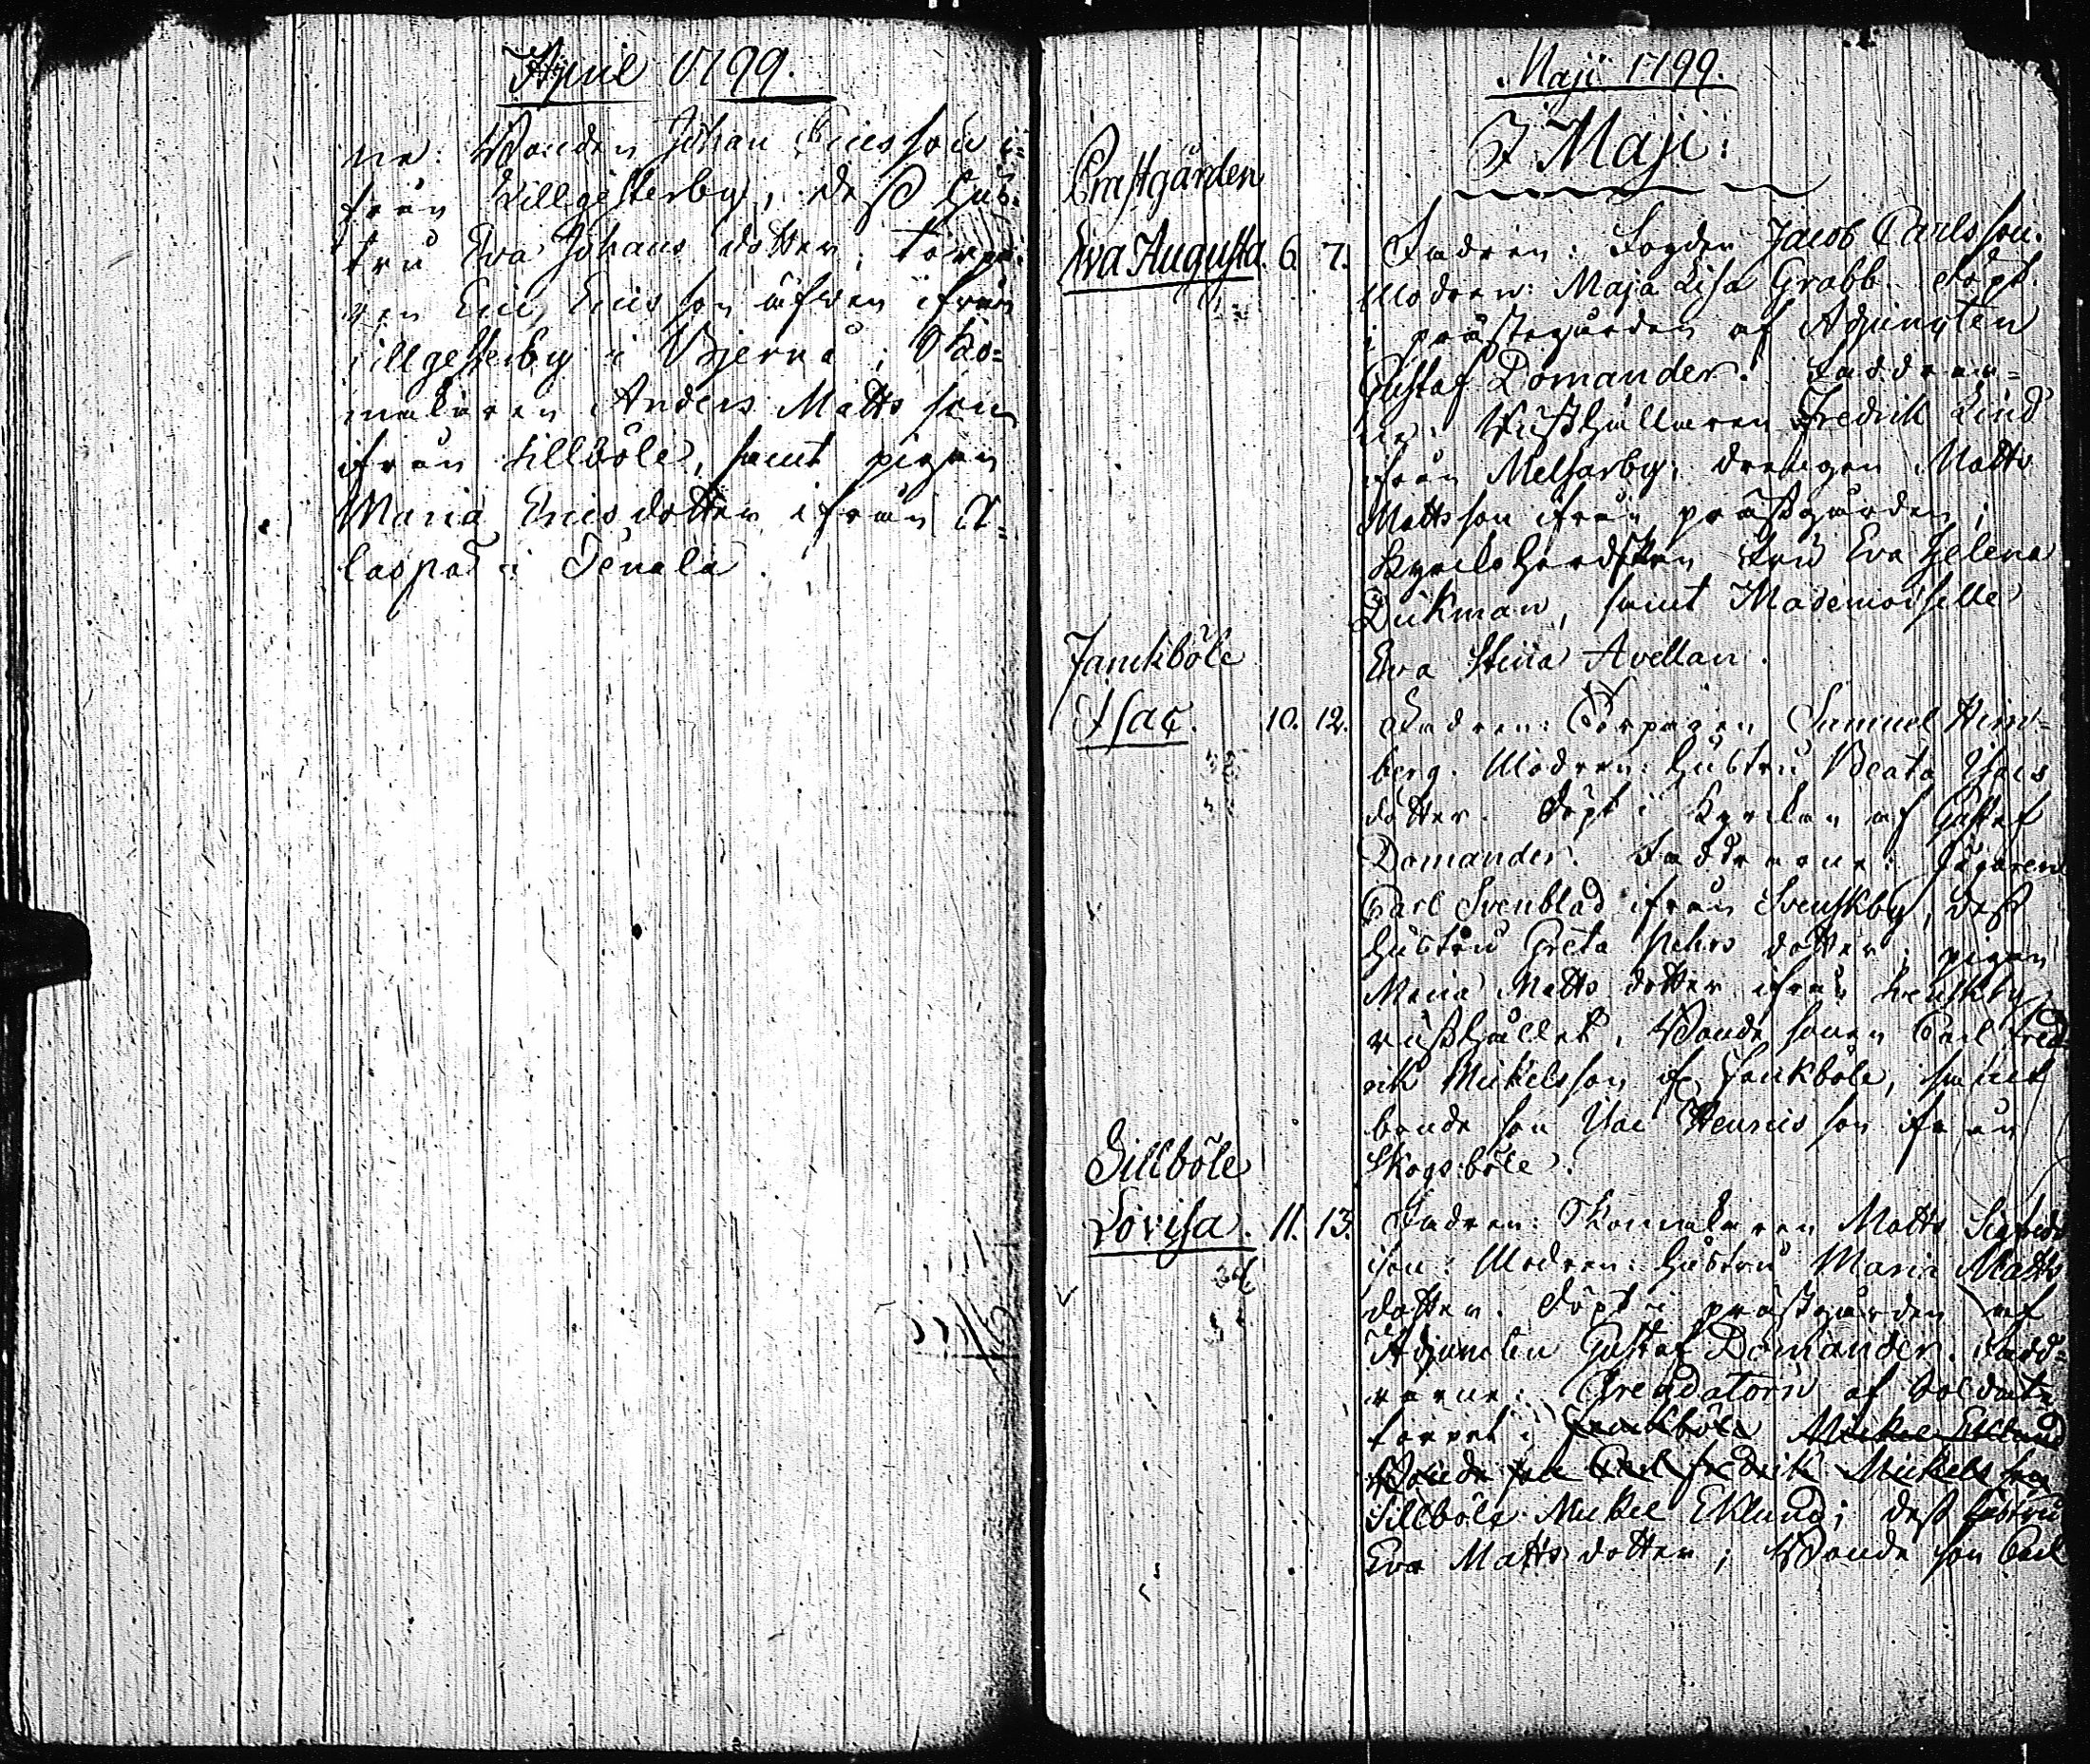 April 1799.
ne: Bonden Johan Ericsson i=
från Lillgesterby, dess hus=
tru Eva Johans dotter; torpa=
ren Eric Ericsson äfven ifrån
Lillgesterby i Bjerno; Sko=
makaren Anders Matts son
ifrån Sillböle, samt pigan
Maria Erics dotter ifrån
laspå i Tenala.
Maji 1799.
I Maji:
Prastgården
Eva Augusta. 6. 7. Fadren: Fogden Jacob Carlsson.
Modren: Maja Lisa Grabb. Döpt
i prästegården af Adjuncten
Gustaf Domander. Faddrar=
ne: Rusthållaren Fredrik Lind
ifrån Melsarby; drengen Matts
Mattsson ifrån prästgården;
Kyrckoherdskan Fru Eva Helena
Dickman, samt Mademoiselle
Eva Stina Avellan.
Janckböle
Isac. 10. 12. Fadren: Torparen Samuel
berg. Modren: hustru Beata Isacs
dotter. Döpt i Kyrckan af Gustaf
Domander. Faddrarne: Jägaren
Carl Svenblad ifrån Svenskby, dess
hustru Greta Pehrs dotter; pigan
Maria Matts dotter ifrån Svenskby
rusthållet, Bonde sonen Carl Fred
rik Mickelsson if. Jenkböle, samt
bonde son Isac Henricsson ifrån
Skogsböle.
Sillböle
Lovisa. 11. 13. Fadren: Skomakaren Matts Sigfrids
son: Modren: hustru Maria Matts
dotter. Döpt i prästgården af
Adjuncten Gustaf Domander. Fadd=
rarne: Arendatorn af Soldats
torpet i Jenckböle Mickel Eklund
Bonde son Carl Fredrik Mickels son
Sillböle Mickel Eklund; dess hustru
Eva Matts dotter; Bonde son Carl